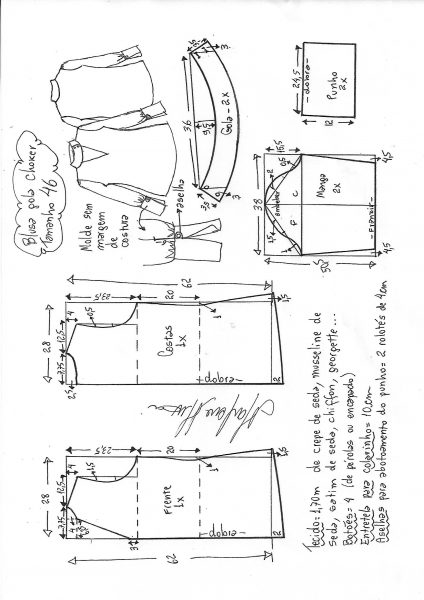 Blusa gola choker
Tamanho 46
Molde sem
margem
de
costura
aselha
36
9,5
Gola - 2x
3
3
24,5
-dobra-
Punho
2x
12
38
15,5
0,5
2
1,5
1
Embeber
C
F
Manga
2x
-Franzir-
4,5
4,5
50,5
62
23,5
20
4
0,5
12,5
7,75
28
2,5
Costas
1x
-dobra-
1
1,5
2
23,5
20
4
1,5
12,5
7,75
28
4
3
Frente
1x
-dobra-
1
1,5
2
62
Tecido= 1,70m de crepe de seda, musseline de
seda, satim de seda, chiffon, georgette...
Botões= 4 (de pérolas ou encapado)
Entretela para colarinho= 10cm
Aselhas para abotoamento do punho= 2 rolotês de 4cm